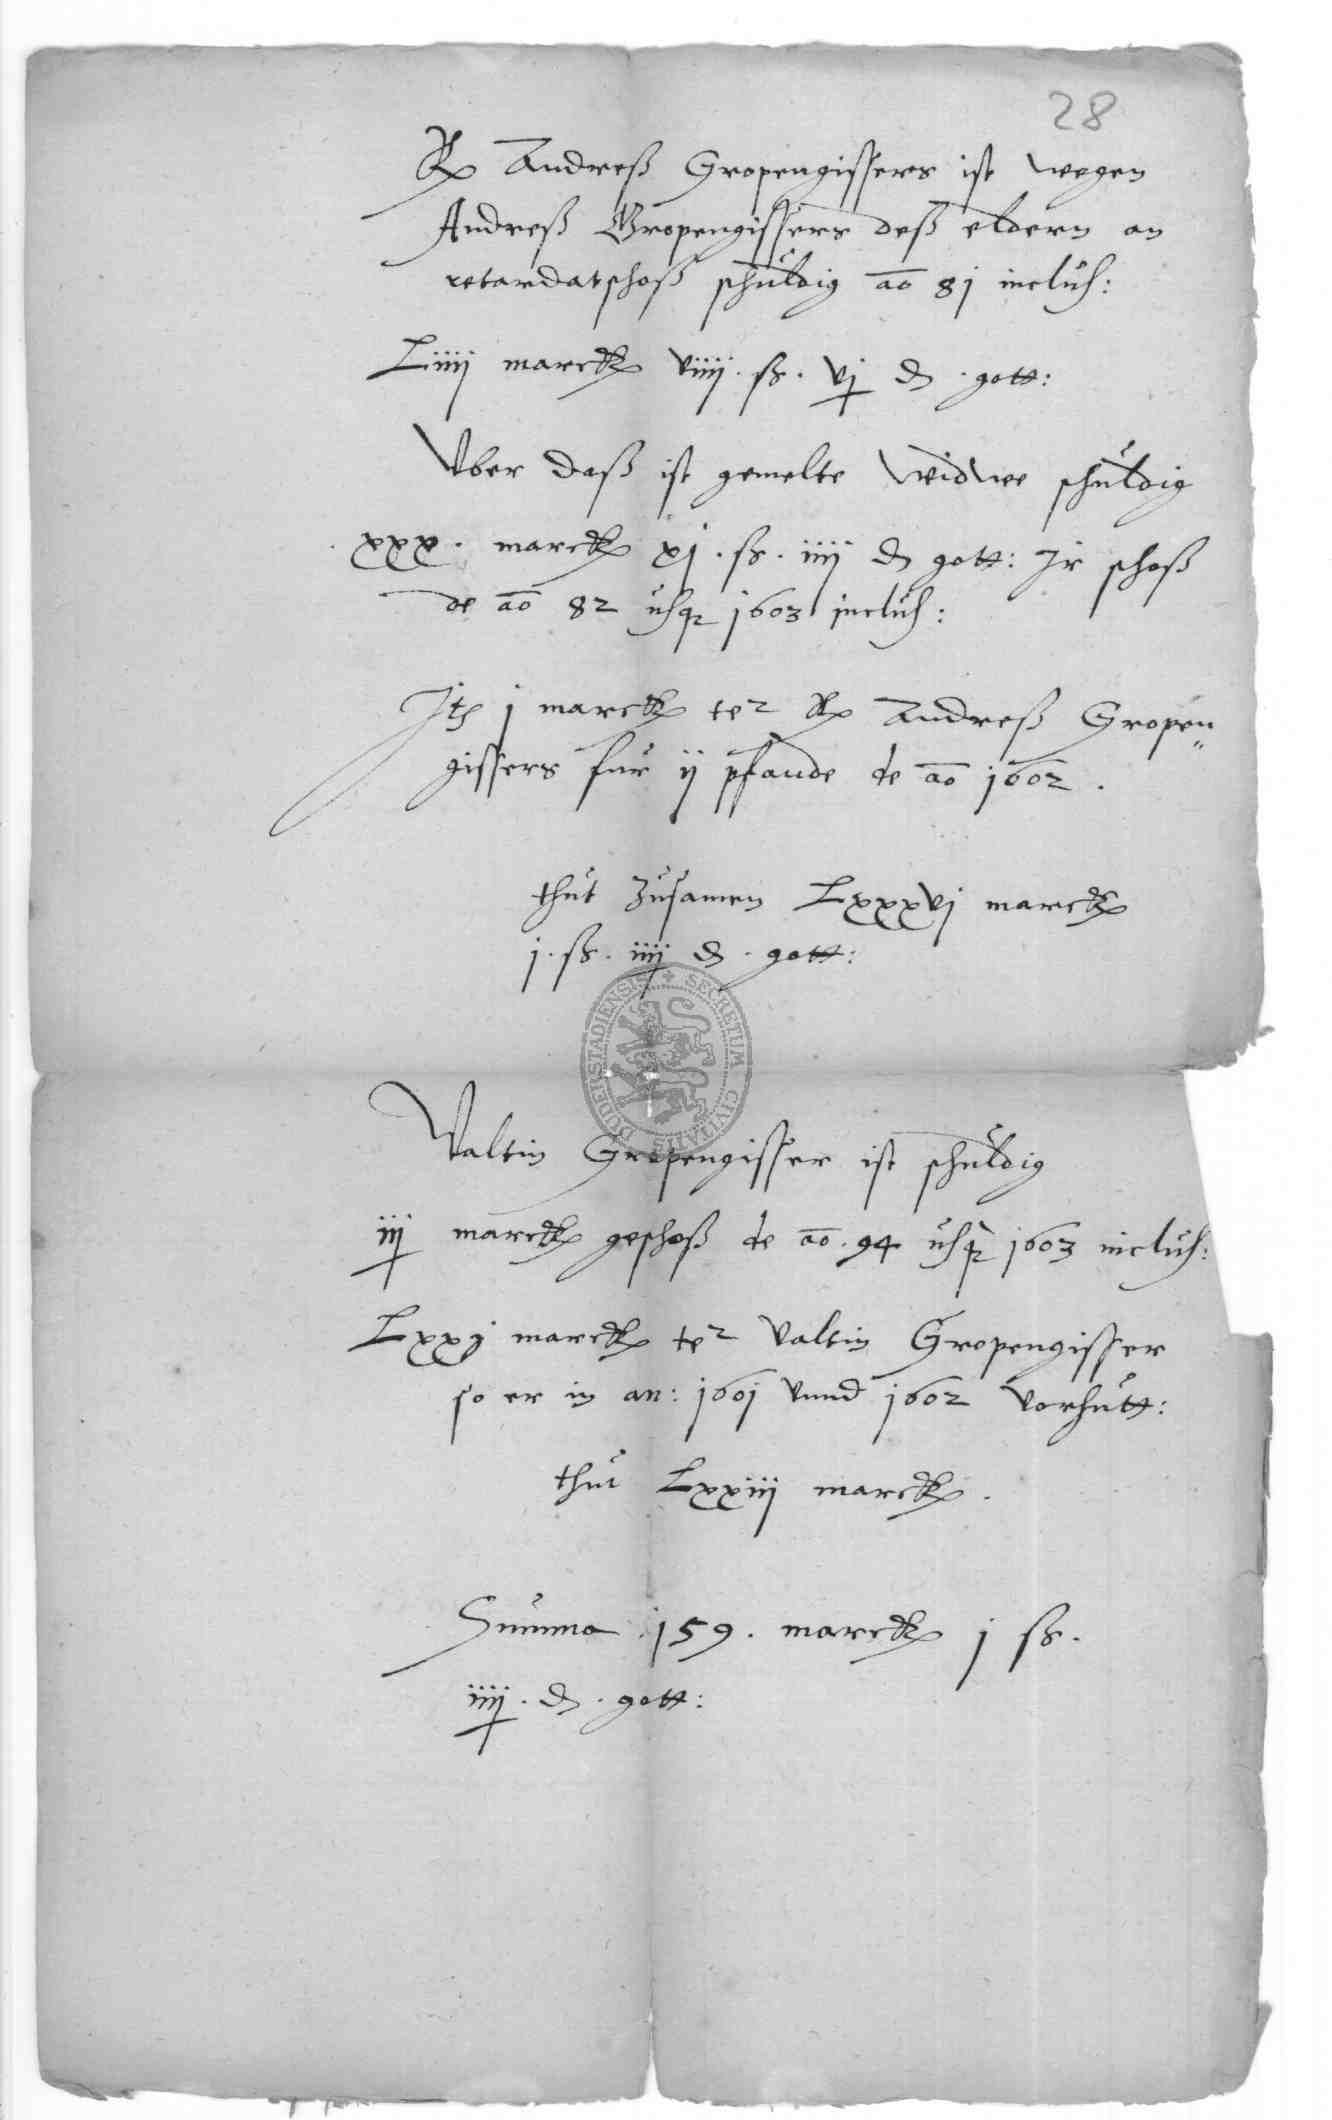 28
Rx Andreß Gropengissers ist wegen
Andreß Gropengissers deß eldern an
retardatschoß schuldig ao 81 inclus:
Liiij marck viiij. ß. vj d. gott:
Vber daß ist gemelte Widwe schuldig
xxx. marck xj. ß. iiij d gott: Ir schoß
de ao 82 usq 1603 inclus:
Ite j marck te2 Rx Andreß Gropen„
gissers fur ij pfande de ao 1602.
thut Zusamen Lxxxvj marck
j. ß. iiij d. gott:
SECRETUM CIVITATIS DUDERSTADIENSIS
Valtin Gropengisser ist schuldig
iij marck geschoß de ao. 94 usq 1603 inclus:
Lxxj marck te2 Valtin Gropengisser
so er in an: 1601 vnnd 1602 vorhutt:
thut Lxxiiij marck.
Summa 159. marck j ß.
iiij. d. gott: